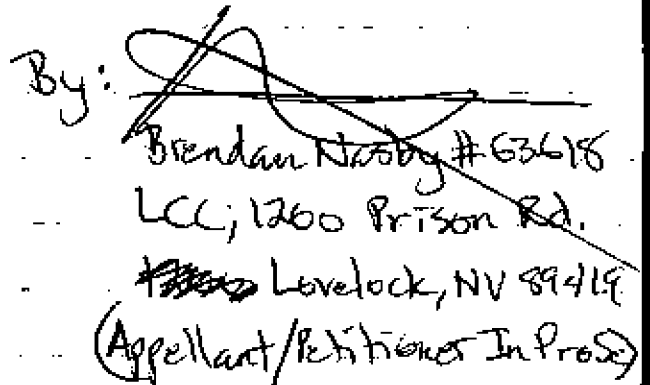 By:
Brendan Nasby #63618
LCC, 1200 Prison Rd.
Lovelock, NV 89419
(Appellant/Petitioner In Prose)